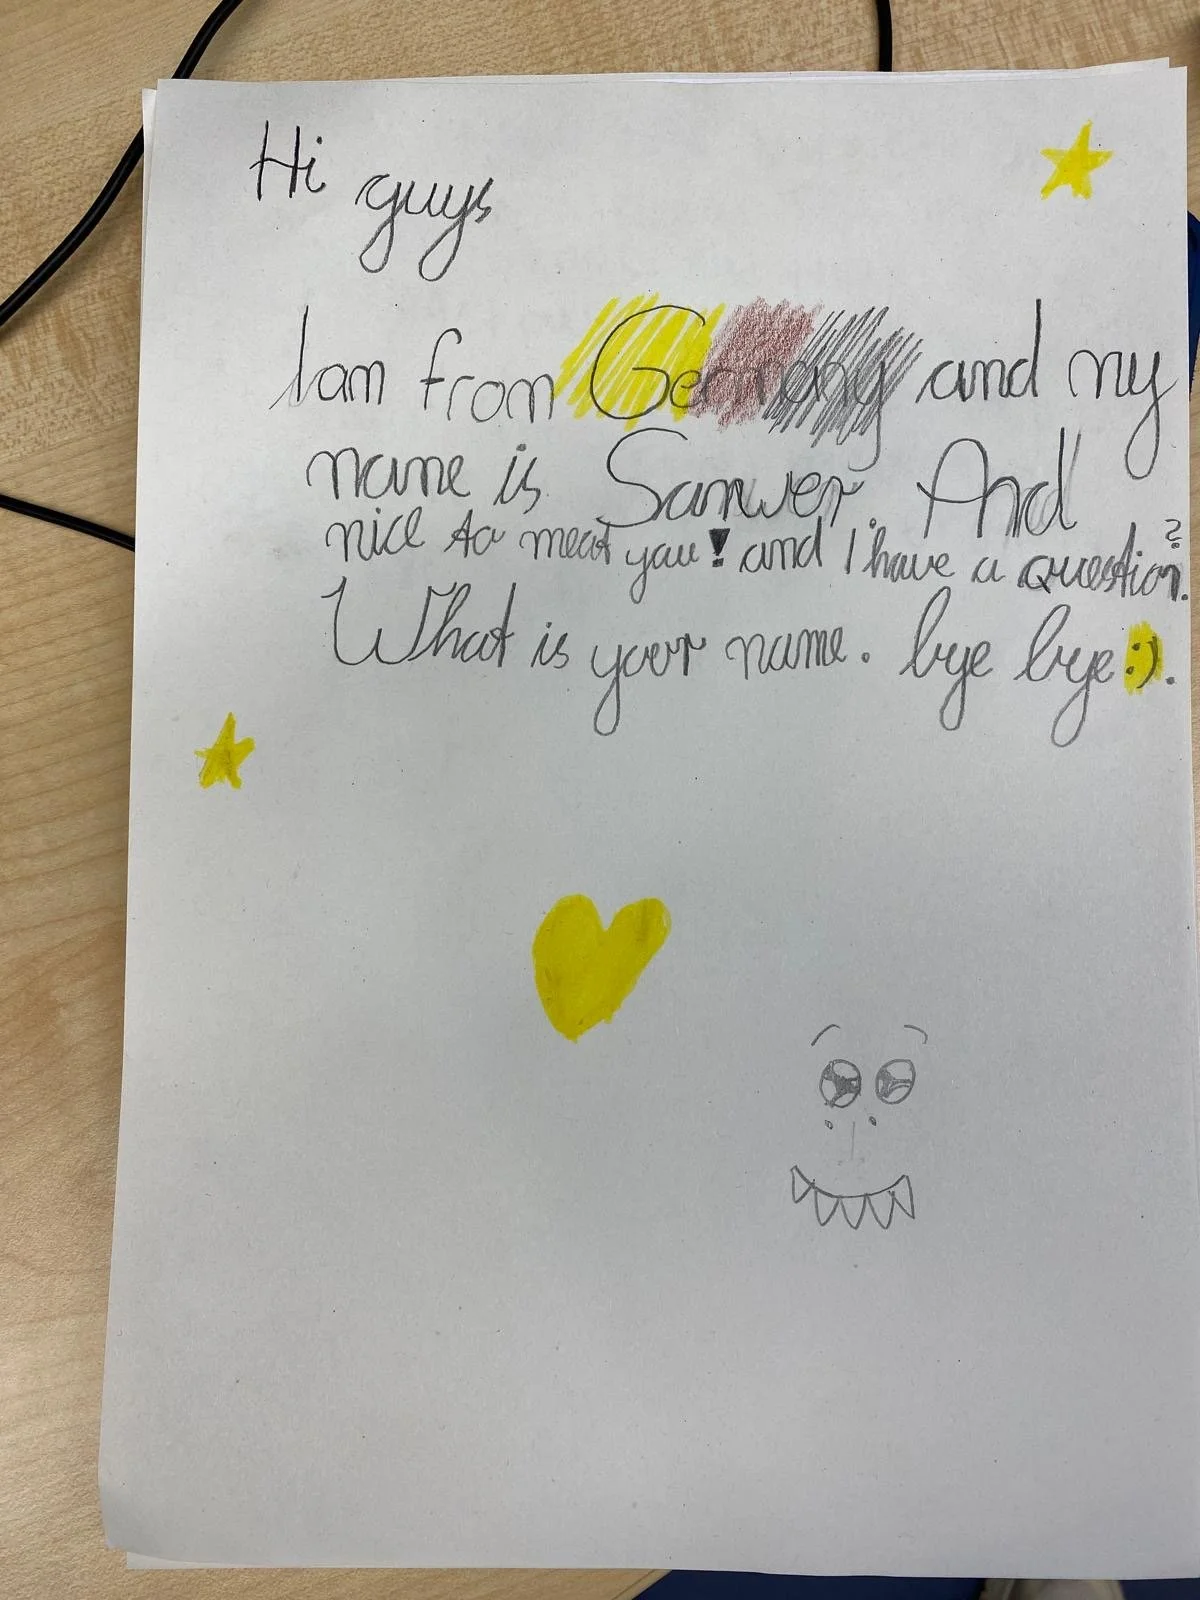 Hi guys
I am from Germany and my
name is Sanwer. And
nice to meat you! and I have a question?.
What is your name. bye bye :).